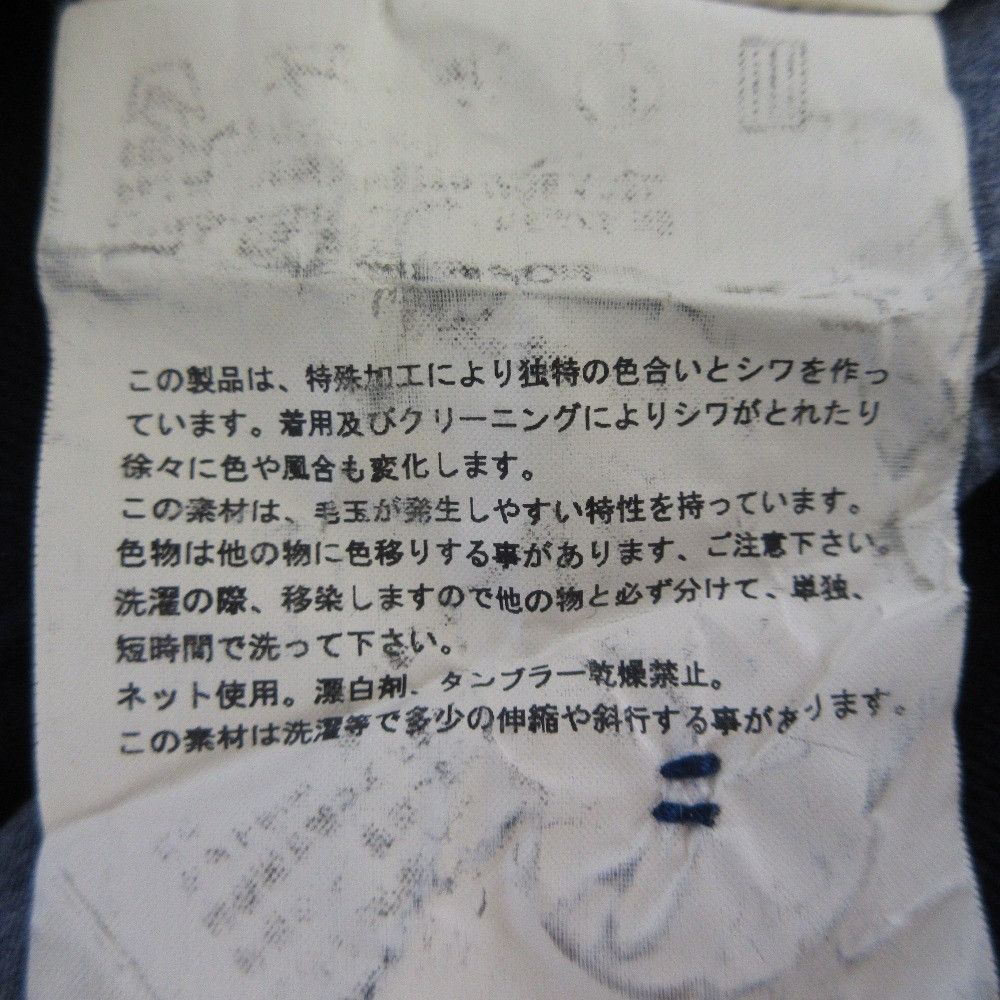 この製品は、特殊加工により独特の色合いとシワを作っ
ています。着用及びクリーニングによりシワがとれたり
徐々に色や風合も変化します。
この素材は、毛玉が発生しやすい特性を持っています。
色物は他の物に色移りする事があります、ご注意下さい。
洗濯の際、移染しますので他の物と必ず分けて、単独、
短時間で洗って下さい。
ネット使用。漂白剤、タンブラー乾燥禁止。
この素材は洗濯等で多少の伸縮や斜行する事があります。